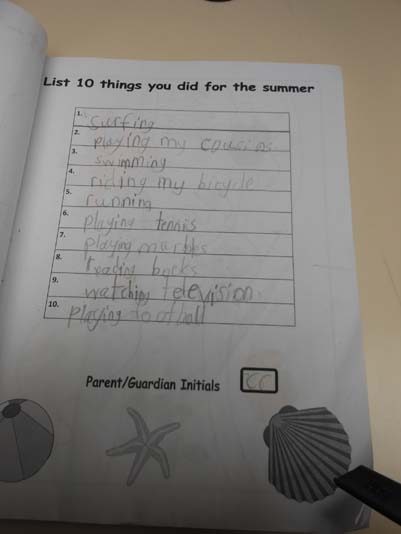 List 10 things you did for the summer
1. surfing
2. playing my cousins
3. swimming
4. riding my bicycle
5. running
6. playing tennis
7. playing marbles
8. reading books
9. watching television
10. playing football
Parent/Guardian Initials CC